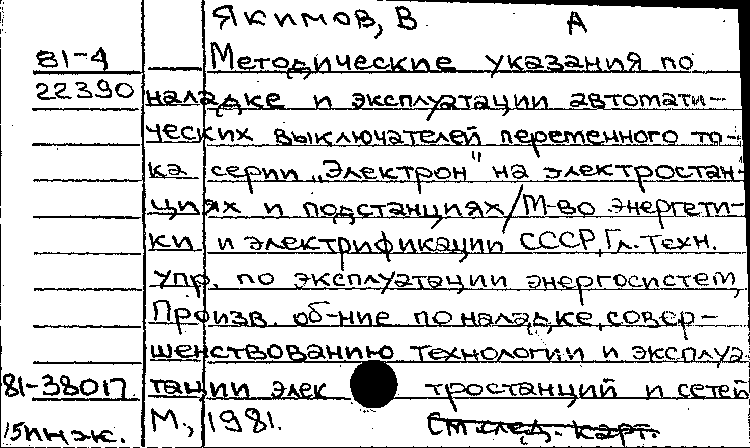 Якимов, В А
81-4 Методические указания по
22390 наладке и эксплуатации автомати-
ческих выключателей переменного то-
ка серии „Электрон" на электростан-
циях и подстанциях/М-во энергети-
ки и электрификации СССР, Гл. техн.
упр. по эксплуатации энергосистем,
Произв. об-ние по наладке, совер-
шенствованию технологии и эксплуа
81-38017 тации элек тростанций и сетей
15 инж. М., 1981. См след. карт.